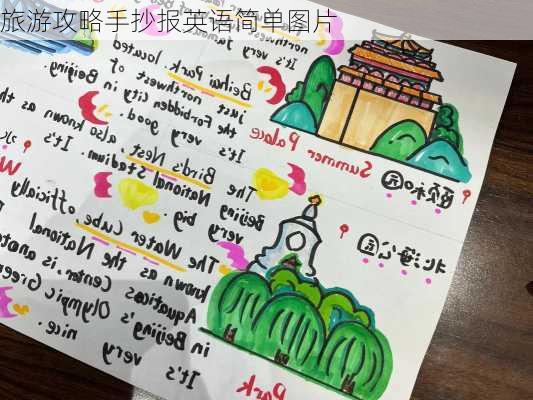 旅游攻略手抄报英语简单图片
It's very
Beihai Park, located
just northwest of
the Forbidden City in
Beijing.
It's very good.
Bird's Nest, also known as
The National Stadium. It's
Beijing
very big.
The Water Cube, officially
known as the National
Aquatics Center, is
in Beijing's Olympic Green
It's very nice.
Summer Palace
颐和园
北海公园
Park